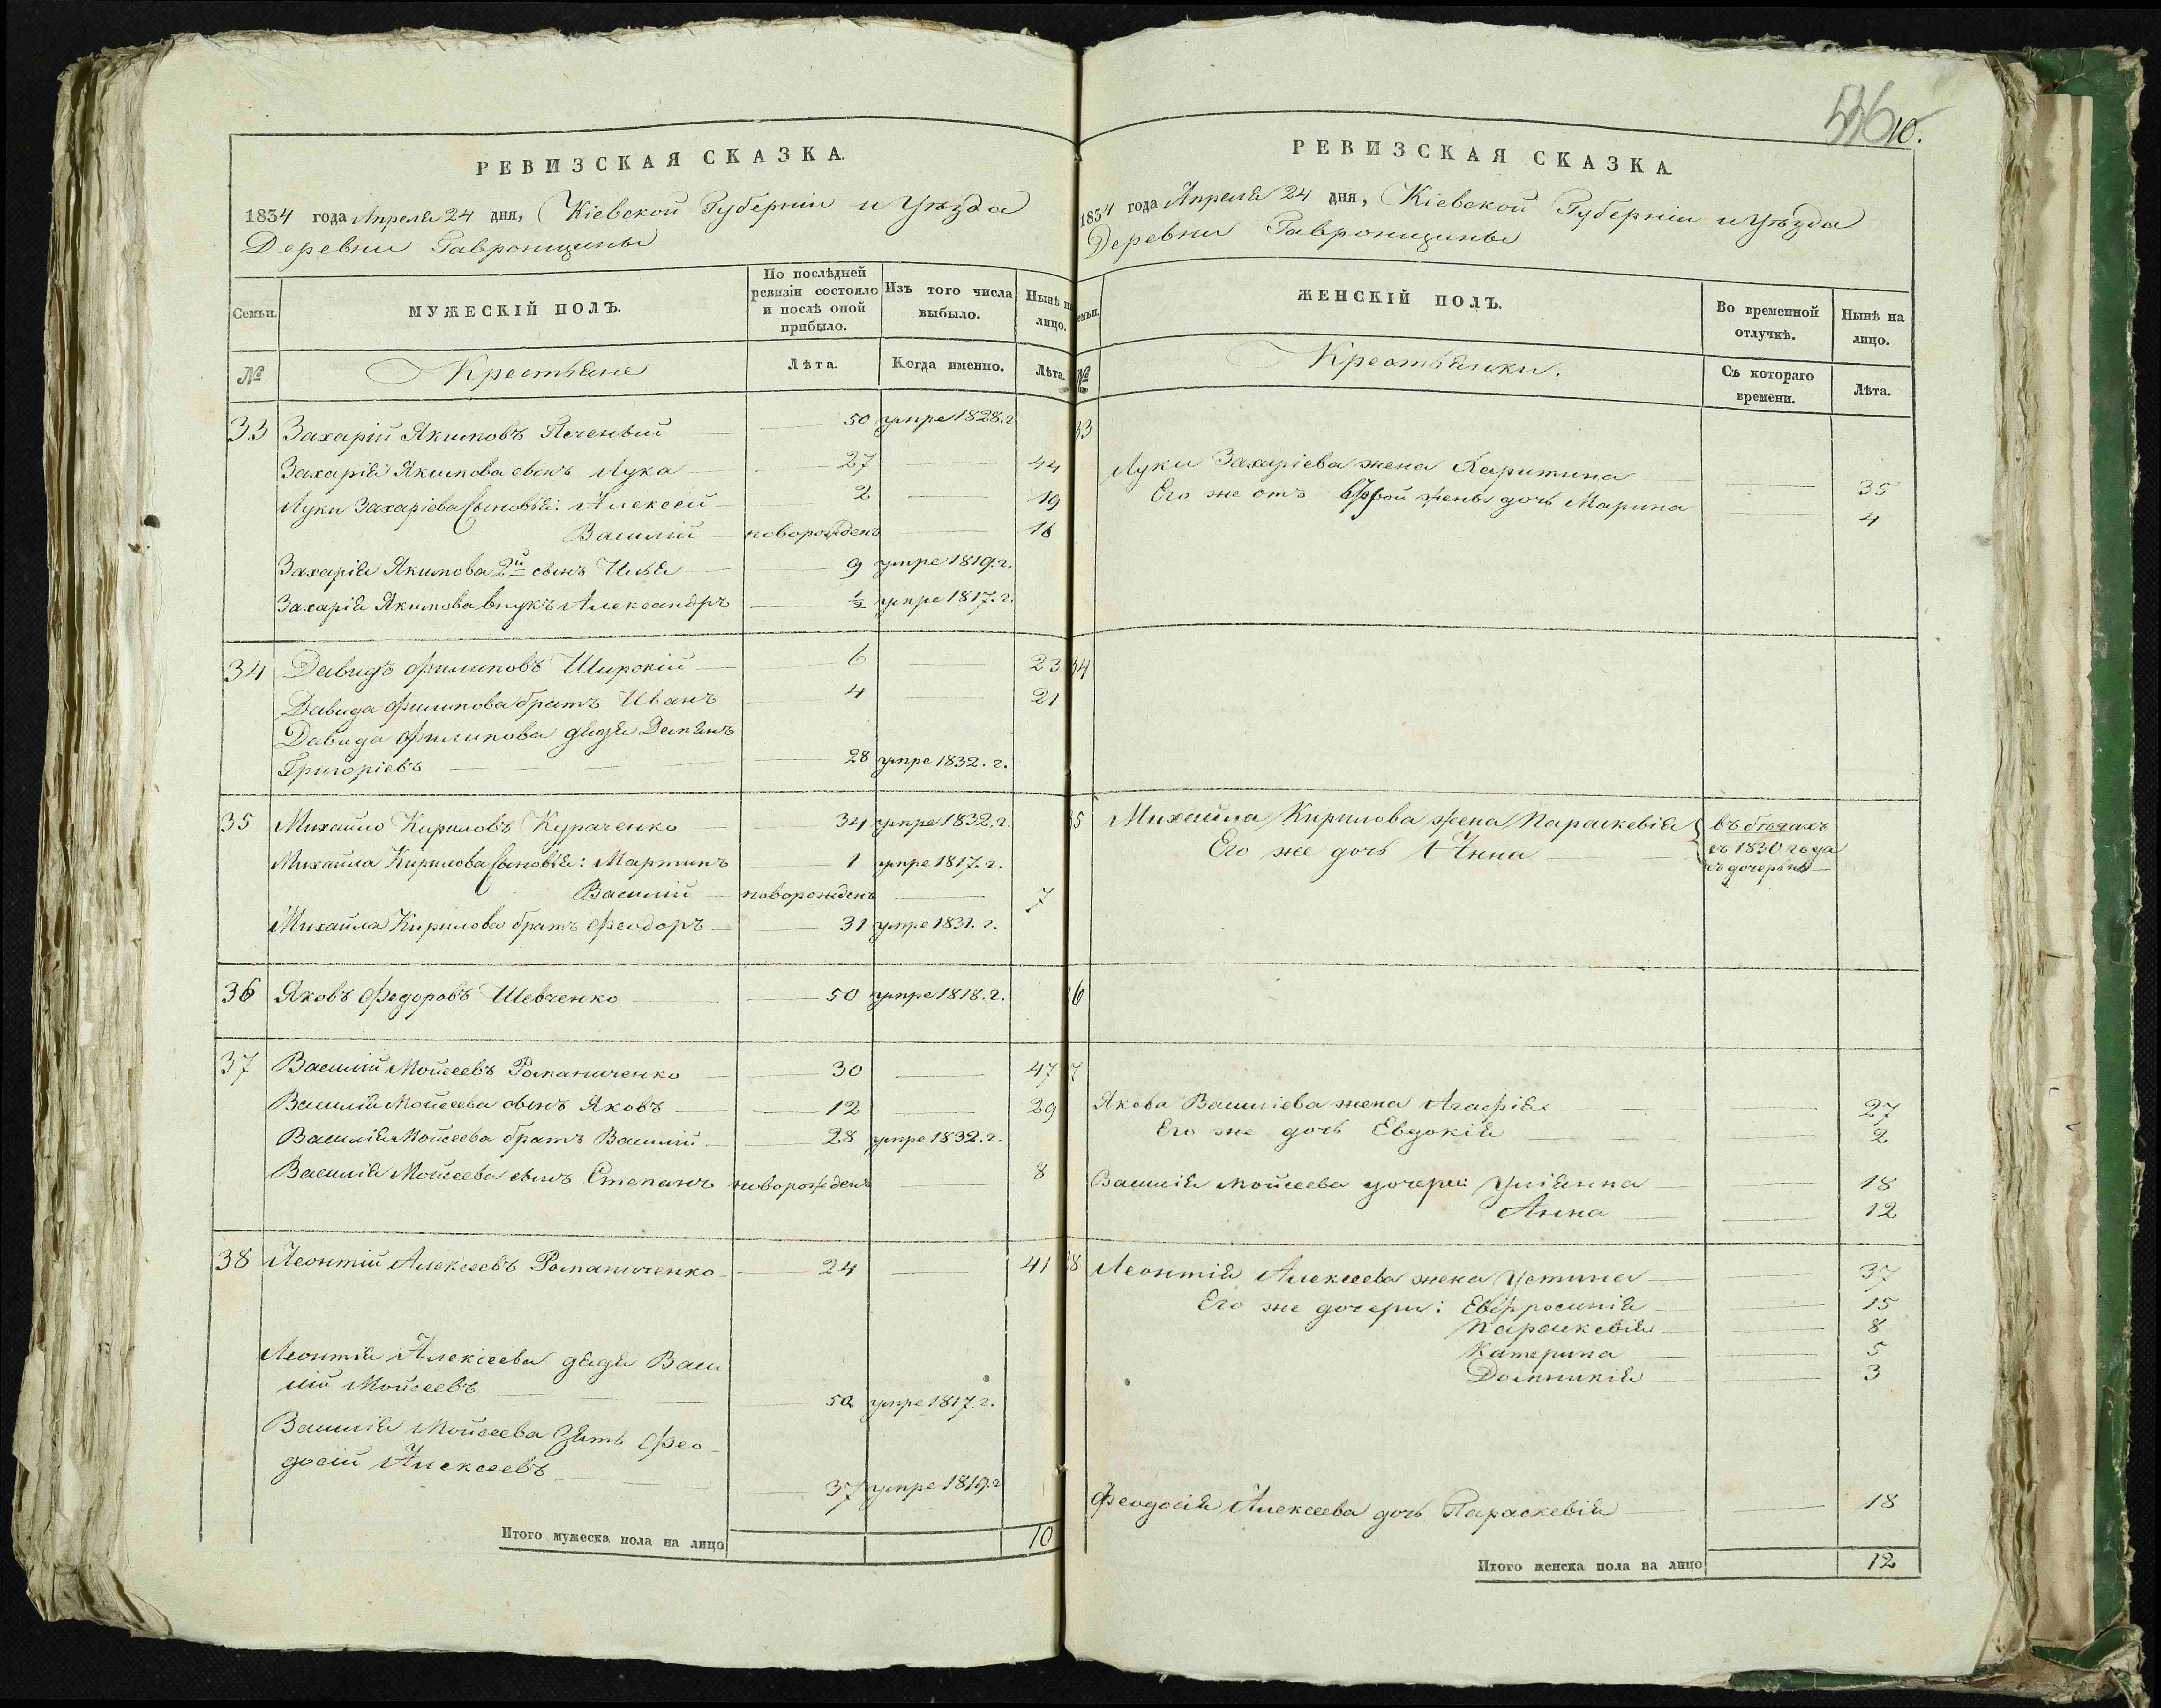 РЕВИЗСКАЯ СКАЗКА.
1834 года Апреля 24 дня, Кіевской Губерніи и Уѣзда
Деревни Гавронщины
Семьи.
МУЖЕСКІЙ ПОЛЪ.
По послѣдней ревизіи состояло и послѣ оной прибыло.
Изъ того числа выбыло.
Нынѣ на лицо.
№
Крестьяне
Лѣта.
Когда именно.
Лѣта.
33 Захарій Якимовъ Печеный 50 умре 1828. г.
Захарія Якимова сынъ Лука 27 44
Луки Захаріева Сыновья: Алексей 2 19
Василій новорожденъ 16
Захарія Якимова 2й сынъ Илья 9 умре 1819. г.
Захарія Якимова внукъ Александръ ½ умре 1817. г.
34 Давидъ Филиповъ Широкій 6 23
Давида Филипова братъ Иванъ 4 21
Давида Филипова дядя Демянъ
Григоріевъ 28 умре 1832. г.
35 Михайло Кириловъ Кураченко 34 умре 1832. г.
Михайла Кирилова Сыновья: Мартинъ 1 умре 1817. г.
Василій новорожденъ 7
Михайла Кирилова братъ Феодоръ 31 умре 1831. г.
36 Яковъ Федоровъ Шевченко 50 умре 1818. г.
37 Василій Мойсеевъ Романиченко 30 47
Василія Мойсеева сынъ Яковъ 12 29
Василія Мойсеева братъ Василій 28 умре 1832. г.
Василія Мойсеева сынъ Степанъ новорожденъ 8
38 Леонтій Алексеевъ Романиченко 24 41
Леонтія Алексеева дядя Васи
лій Мойсеевъ 50 умре 1817. г.
Василія Мойсеева Зять Фео-
досій Алексеевъ 37 умре 1819. г
Итого мужеска пола на лицо 10
10.
РЕВИЗСКАЯ СКАЗКА.
1834 года Апреля 24 дня, Кіевской Губерніи и Уѣзда
Деревни Гавронщины
Семьи.
ЖЕНСКІЙ ПОЛЪ.
Во временной отлучкѣ.
Нынѣ на лицо.
№
Крестьянки.
Съ котораго времени.
Лѣта.
33
Луки Захаріева жена Харитина 35
Его же отъ 1й жены дочь Марина 4
34
35 Михайла Кирилова жена Параскевія въ бѣгахъ
Его же дочь Анна съ 1830 года
съ дочерью
36
37
Якова Василіева жена Агафія 27
Его же дочь Евдокія 2
Василія Мойсеева дочери Уліянна 18
Анна 12
38 Леонтія Алексеева жена Устина 37
Его же дочери: Евфросинія 15
Параскевія 8
Катерина 5
Домникія 3
Феодосія Алексеева дочь Параскевія 18
Итого женска пола на лицо 12